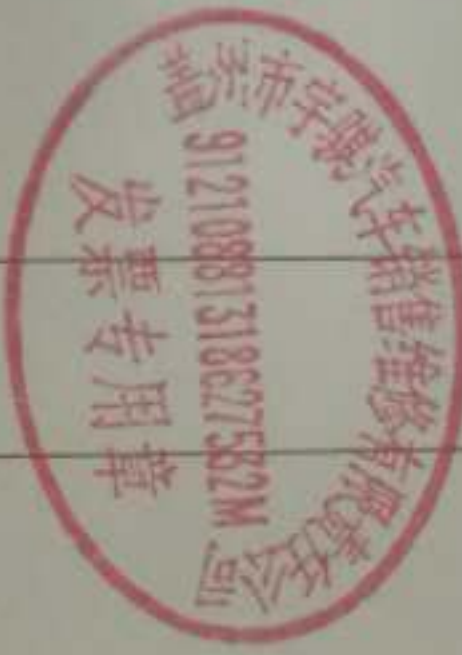 盖州市宇骐汽车销售维修有限责任公司
91210881318627582M
发票专用章